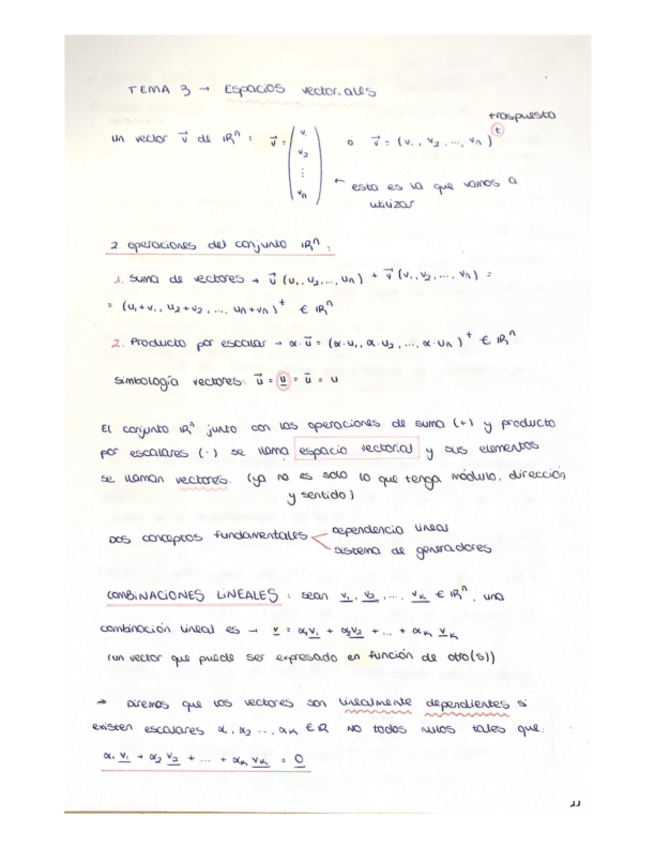 TEMA 3 → Espacios vectoriales
traspuesta
un vector v⃗ de ℝⁿ : v⃗ = (v₁ v₂ ⋮ vₙ) ó v⃗ = (v₁, v₂, ..., vₙ)ᵗ
← esta es la que vamos a
utilizar
2 operaciones del conjunto ℝⁿ :
1. Suma de vectores → u⃗ (u₁, u₂, ..., uₙ) + v⃗ (v₁, v₂, ..., vₙ) =
= (u₁+v₁, u₂+v₂, ..., uₙ+vₙ)ᵗ ∈ ℝⁿ
2. Producto por escalar → α·u⃗ = (α·u₁, α·u₂, ..., α·uₙ)ᵗ ∈ ℝⁿ
Simbología vectores: u⃗ = u̲ = ū = u
El conjunto ℝⁿ junto con las operaciones de suma (+) y producto
por escalares (·) se llama espacio vectorial y sus elementos
se llaman vectores. (ya no es solo lo que tenga módulo, dirección
y sentido)
Dos conceptos fundamentales
dependencia lineal
sistema de generadores
COMBINACIONES LINEALES : sean v̲₁, v̲₂, ..., v̲ₖ ∈ ℝⁿ, una
combinación lineal es → v̲ = α₁v̲₁ + α₂v̲₂ + ... + αₖ v̲ₖ
(un vector que puede ser expresado en función de otro(s))
→ Diremos que los vectores son linealmente dependientes si
existen escalares α₁, α₂ ..., αₖ ∈ ℝ NO todos nulos tales que:
α₁ v̲₁ + α₂ v̲₂ + ... + αₖ v̲ₖ = 0̲